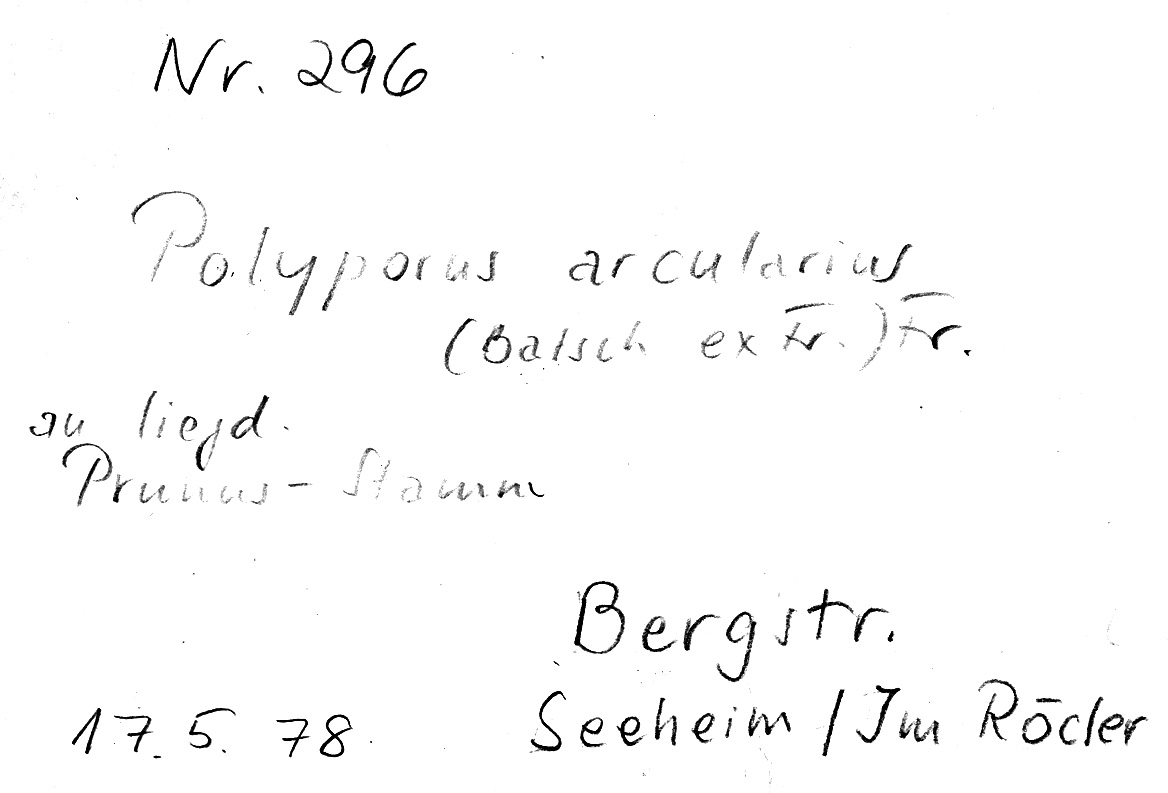 Nr. 296
Polyporus arcularius
(Batsch ex Fr.) Fr.
an liegd.
Prunus - Stamm
Bergstr.
17.5.78 Seeheim / Im